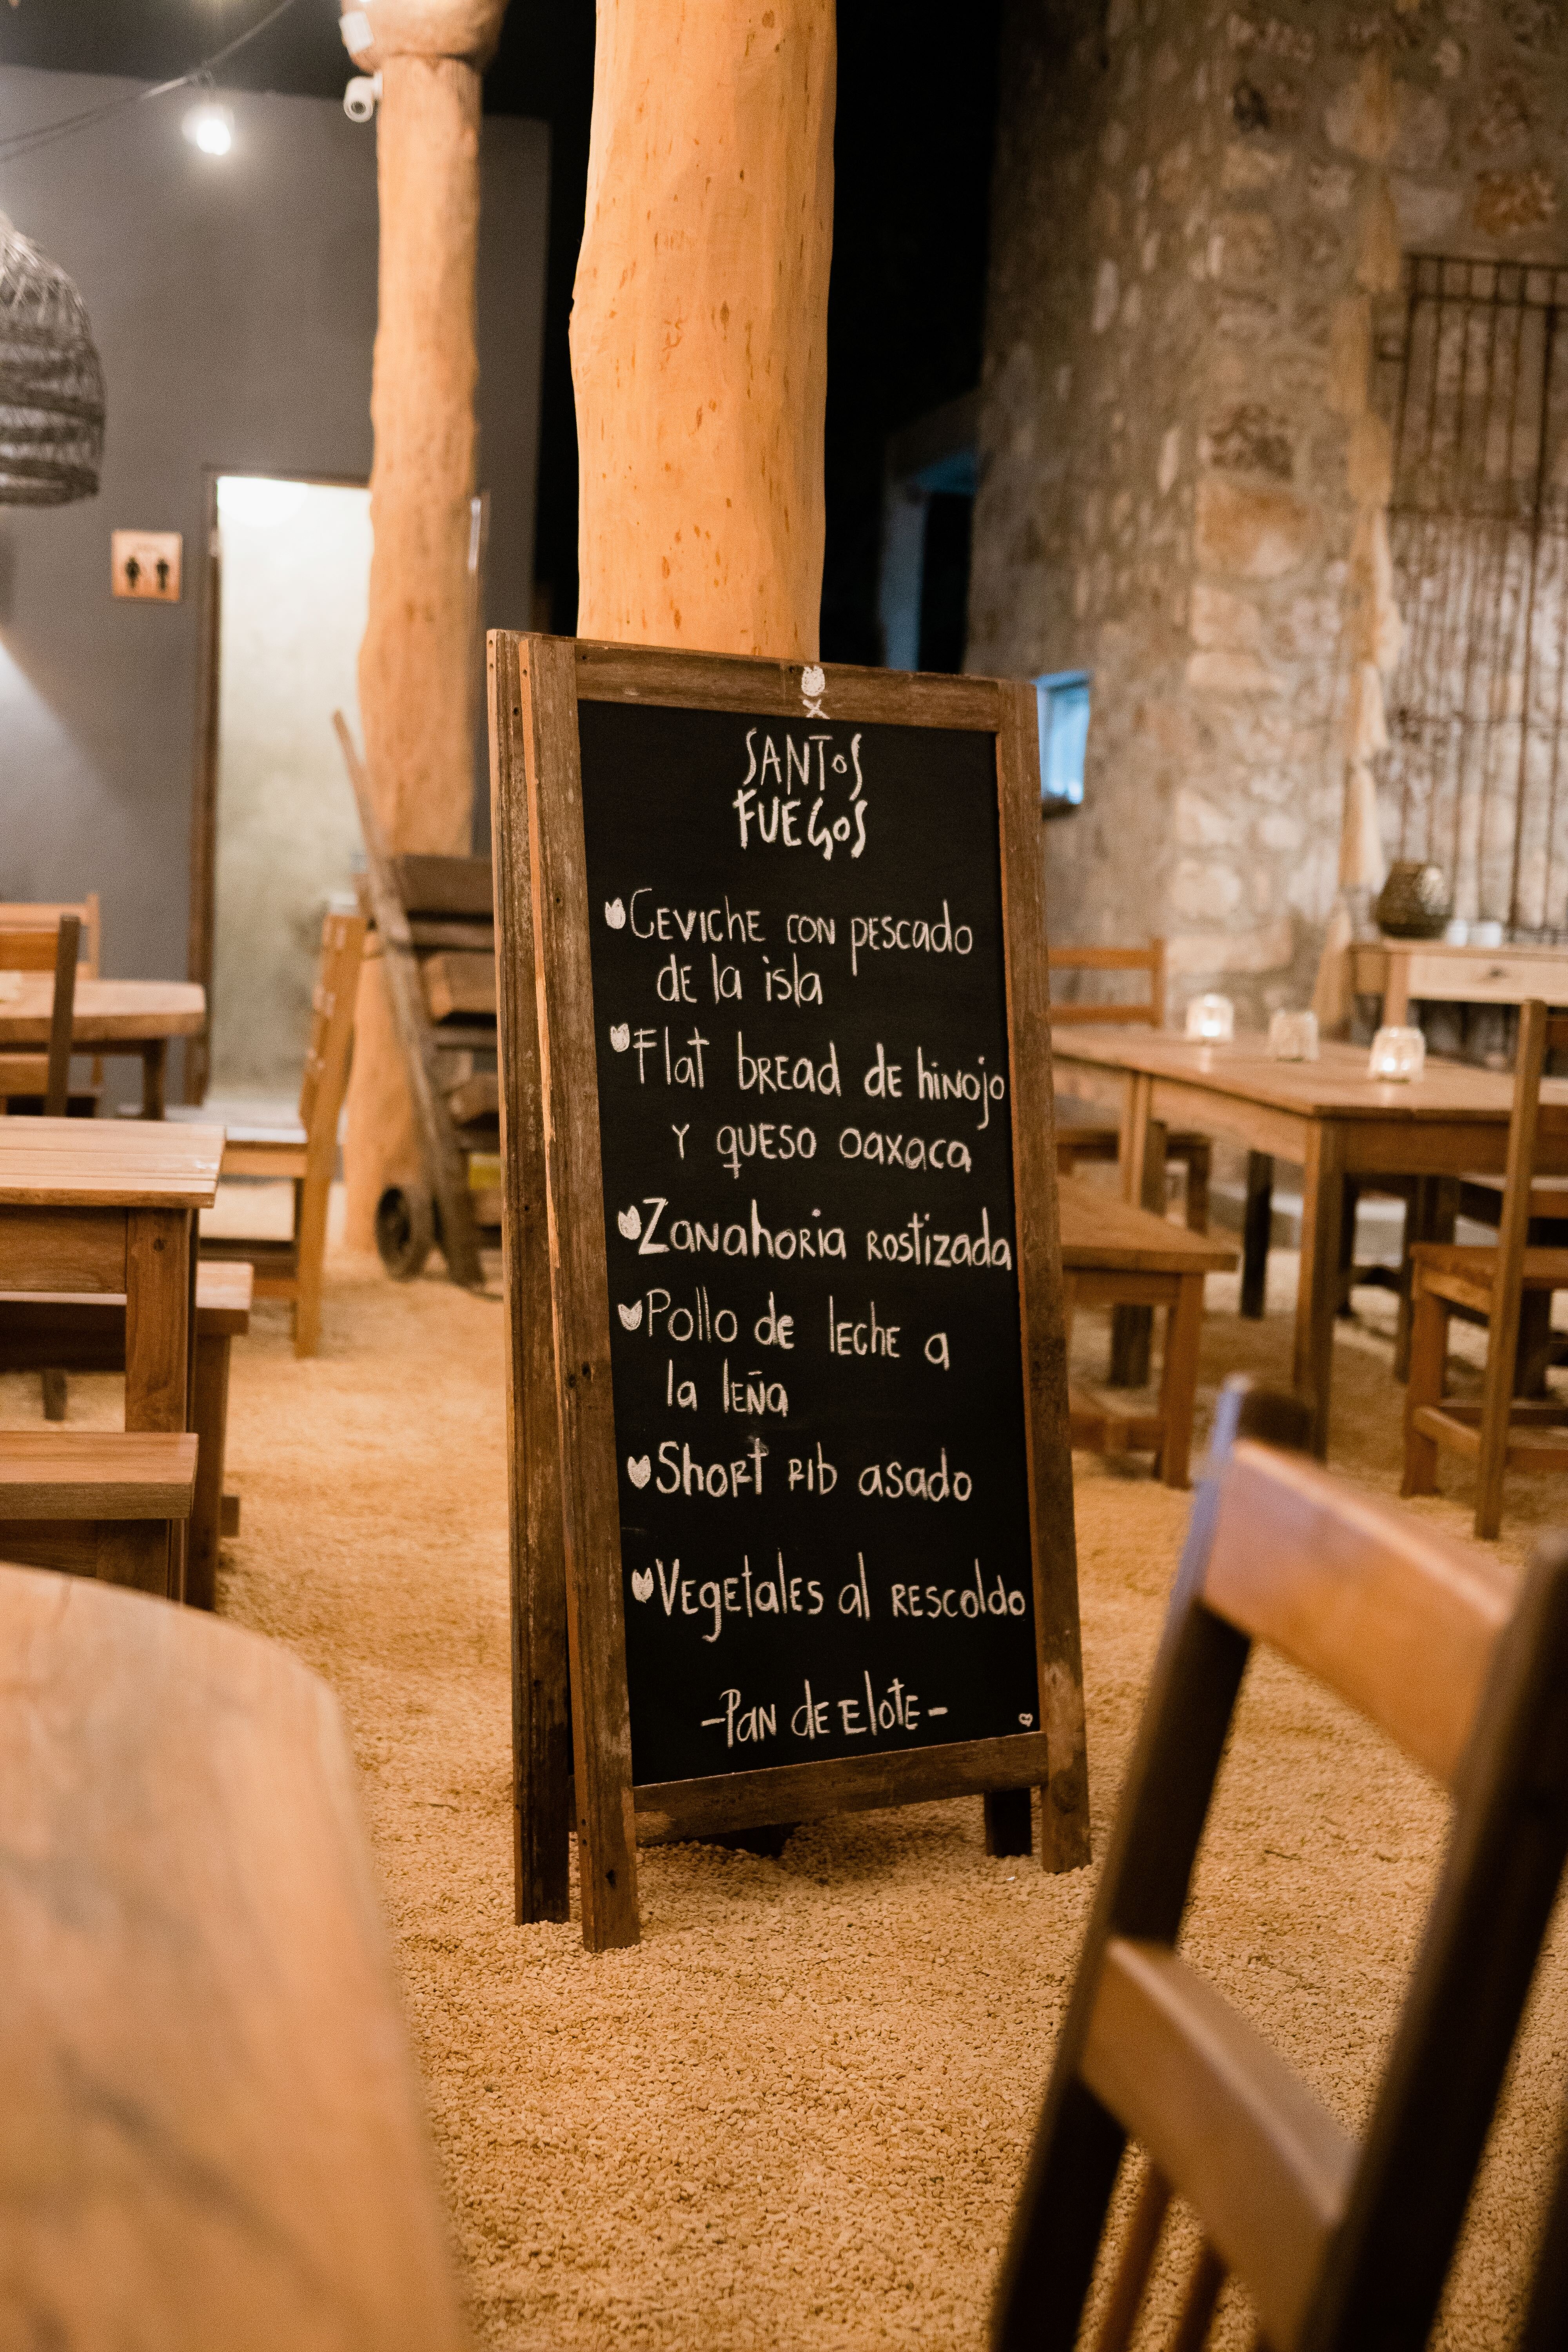 SANTOS
FUEGOS
CEVICHE CON PESCADO
DE la isla
Flat BREAD DE hiNOJO
Y QUESO OAXACA
ZANAhORIA ROSTIZADA
Pollo de lEChE a
la lEÑa
ShORT RIb asado
VEgEtalES al RESCOldo
-PaN dE ElOTE-